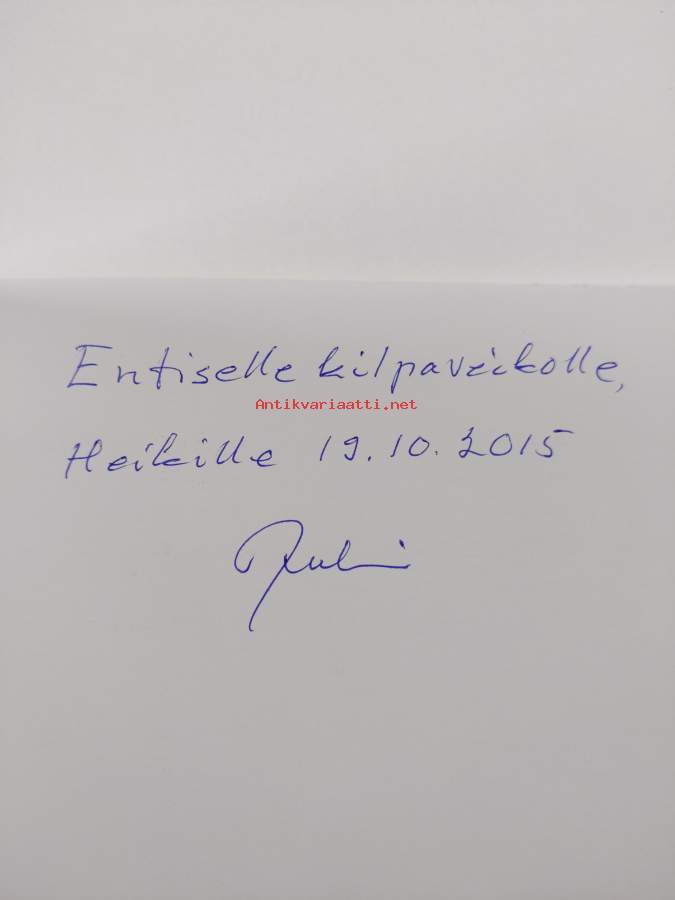 Entiselle kilpaveikolle,
Antikvariaatti.net
Heikille 19.10.2015